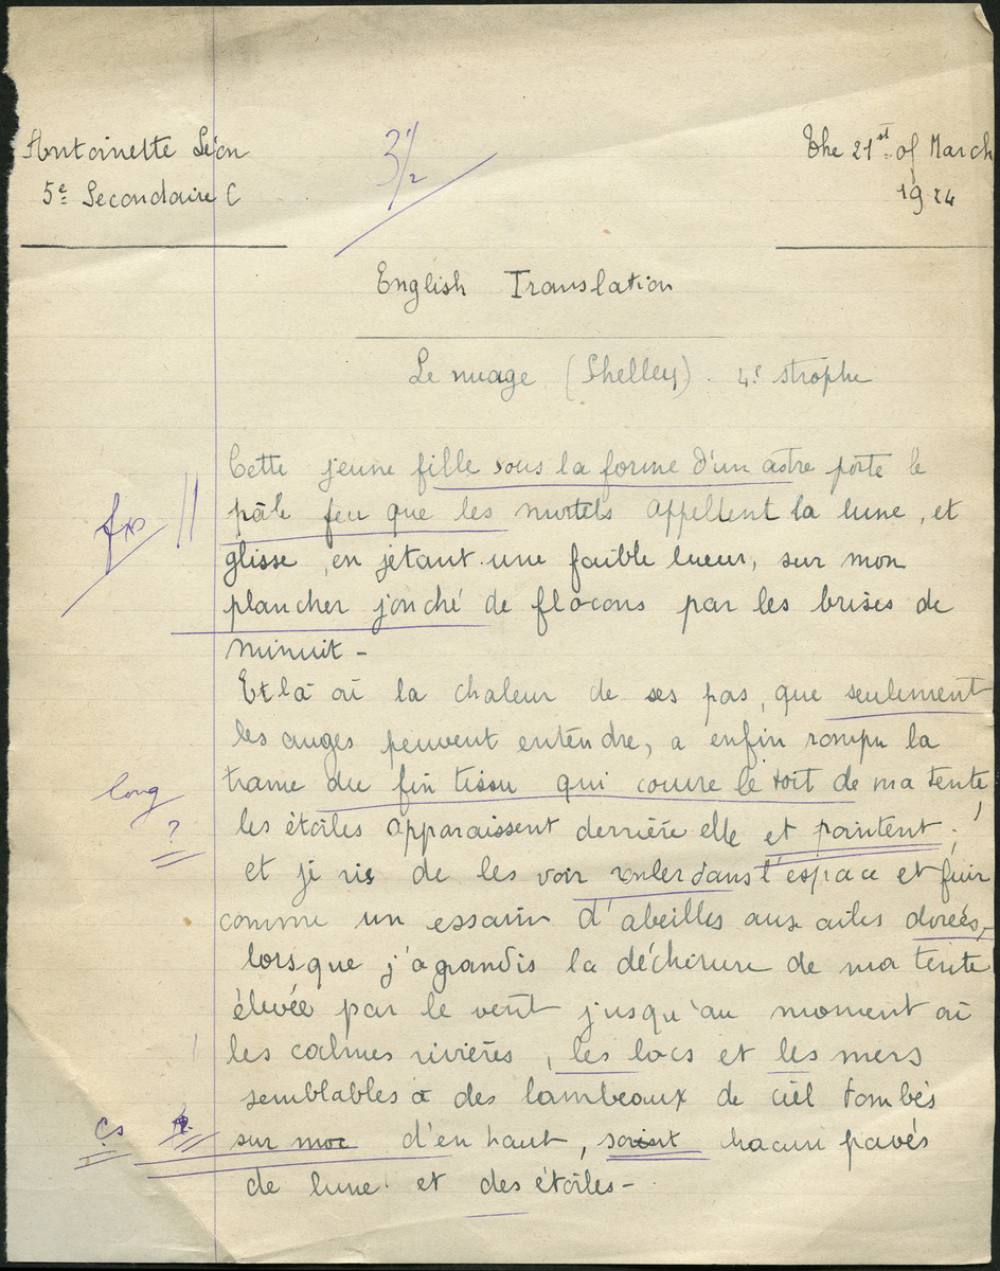 Antoinette Léon
3 1/2
The 21st of March
5e Secondaire C
1924
English Translation
Le nuage (Shelley). 4e strophe
Cette jeune fille sous la forme d'un astre porte le
pâle feu que les mortels appellent la lune, et
fs
glisse, en jetant une faible lueur, sur mon
plancher jonché de flocons par les brises de
minuit -
Et là où la chaleur de ses pas, que seulement
les anges peuvent entendre, a enfin rompu la
trame du fin tissu qui couvre le toit de ma tente,
long
les étoiles apparaissent derrière elle et pointent.
?
et je ris de les voir rouler dans l'espace et fuir
comme un essaim d'abeilles aux ailes dorées,
lorsque j'agrandis la déchirure de ma tente
élevée par le vent jusqu'au moment où
les calmes rivières, les lacs et les mers
semblables à des lambeaux de ciel tombés
cs
sur moi d'en haut, soient chacun pavés
de lune et des étoiles -